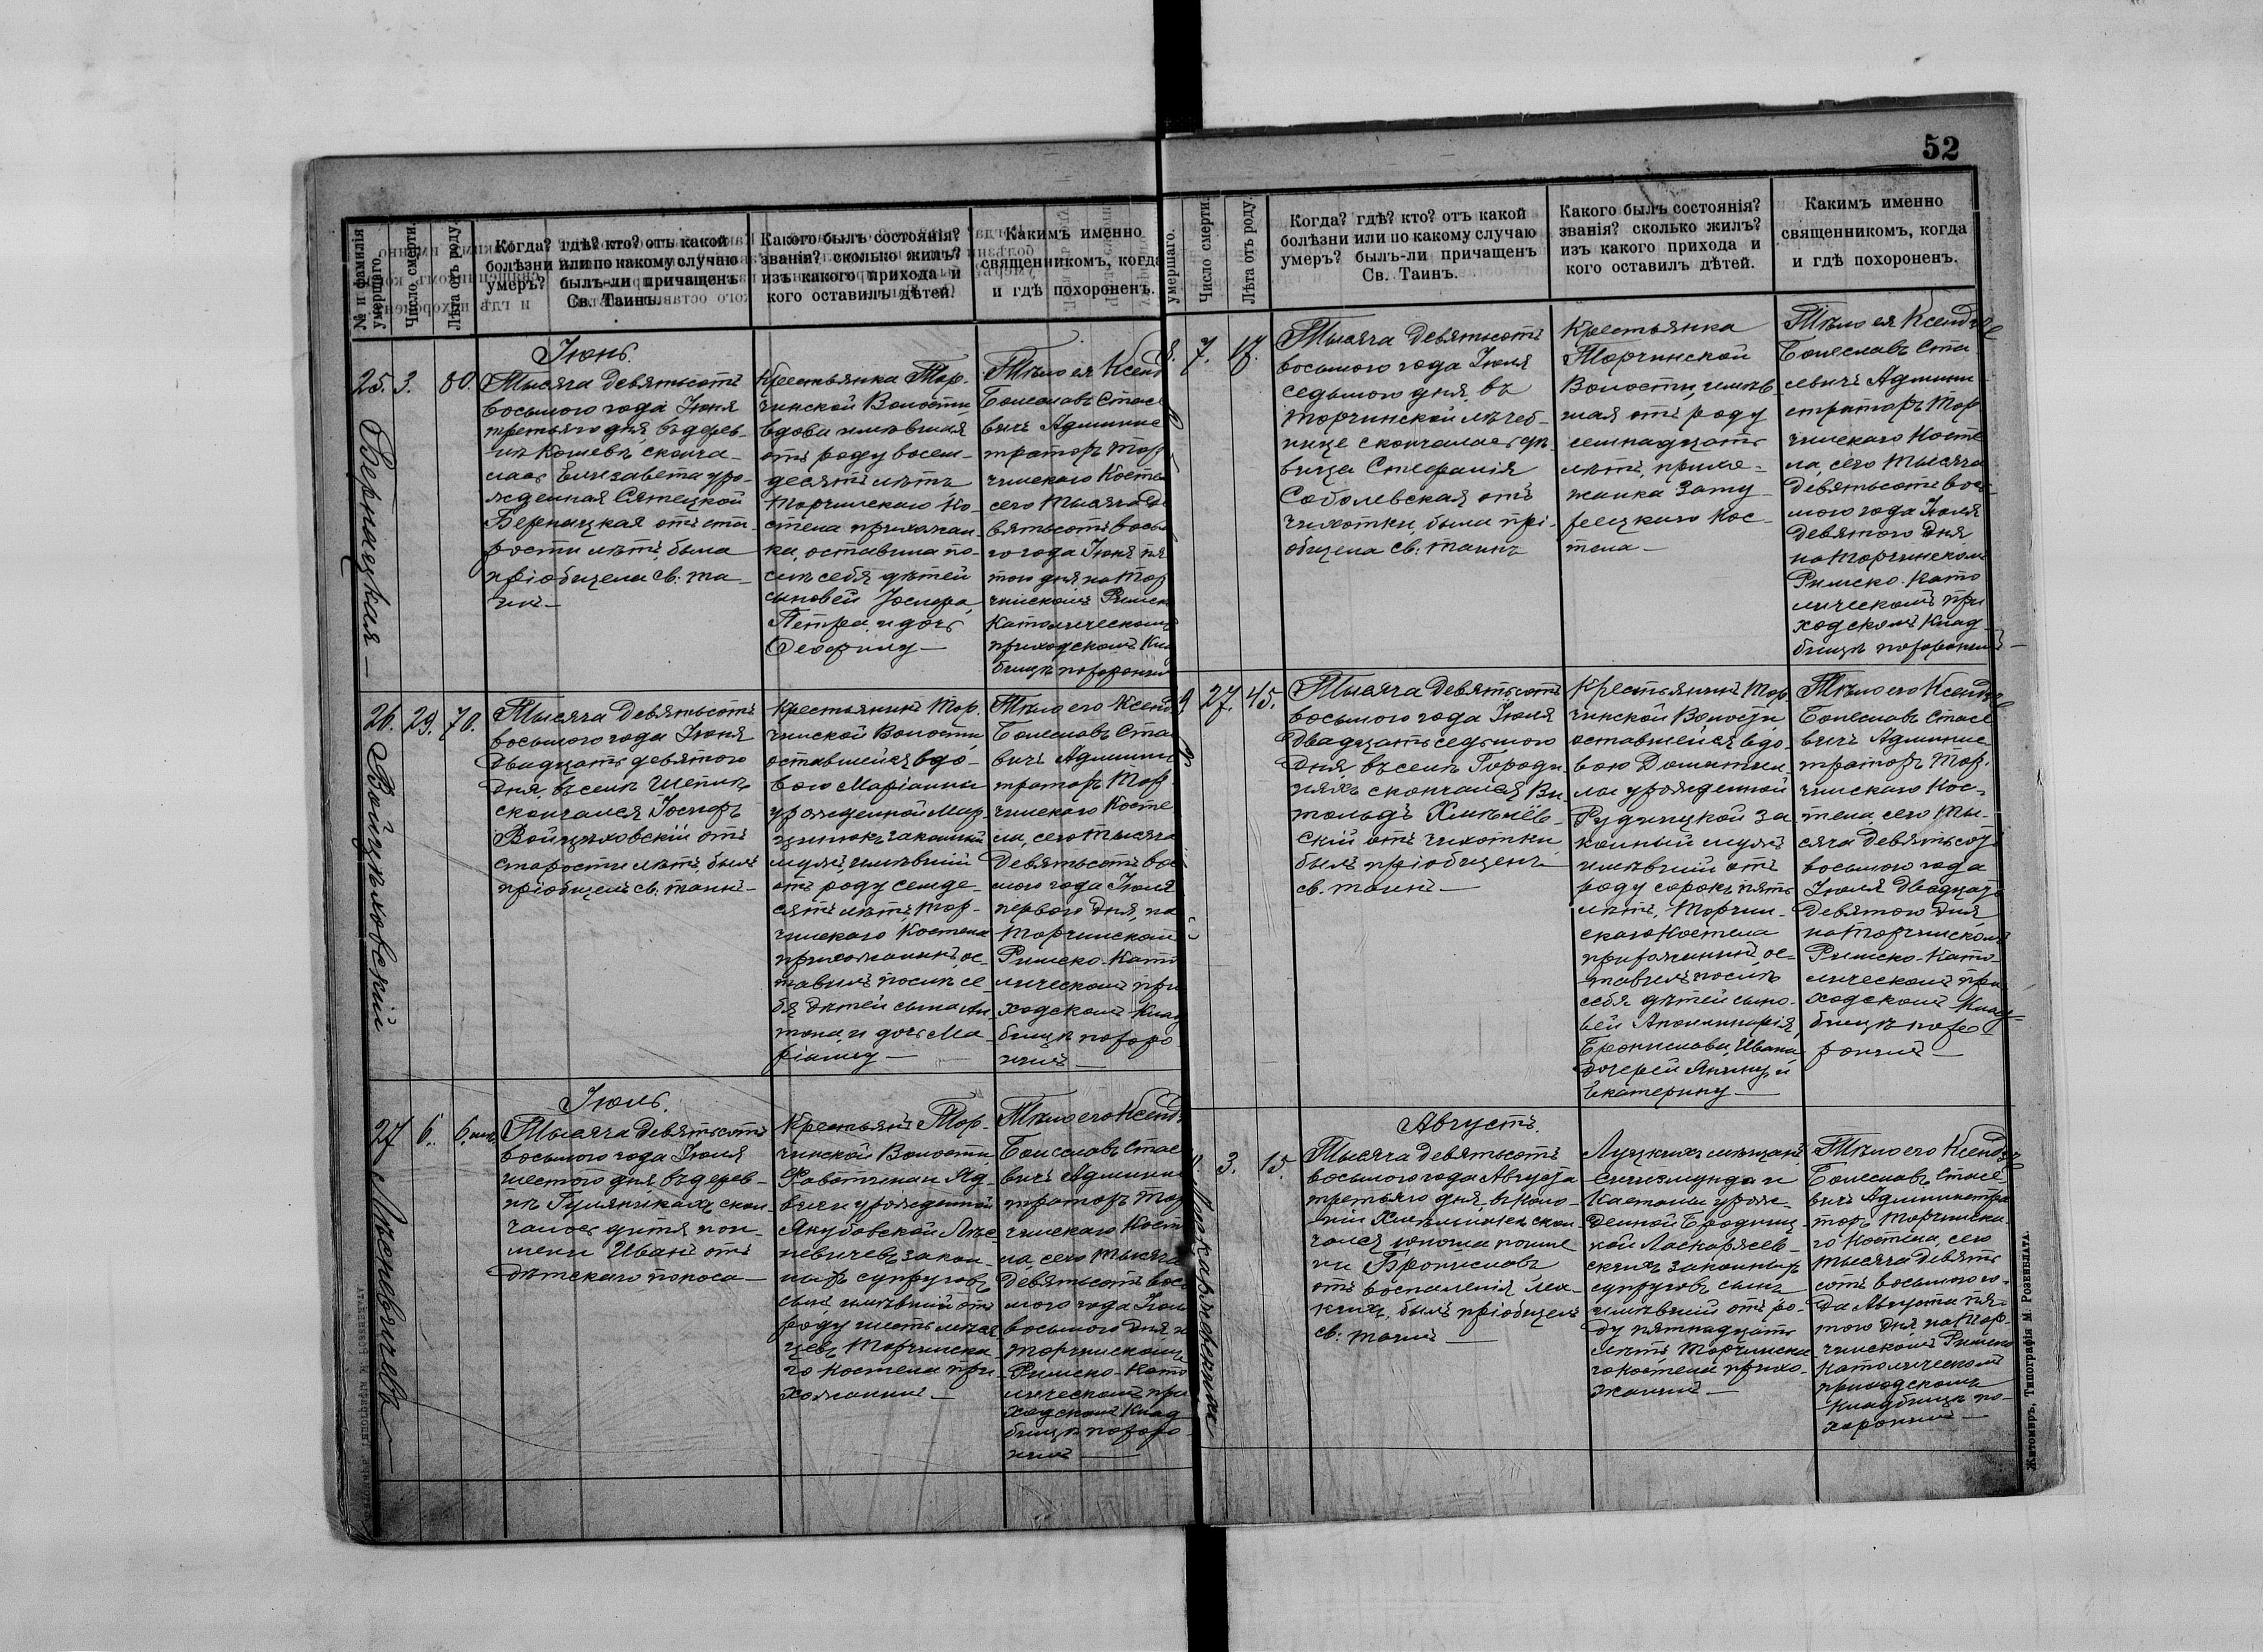 52
№ и фамилія умершаго.
Число смерти.
Лѣта отъ роду.
Когда? гдѣ? кто? отъ какой
болѣзни или по какому случаю
умеръ? былъ-ли причащенъ
Св. Таинъ.
Какого былъ состоянія?
званія? сколько жилъ?
изъ какого прихода и
кого оставилъ дѣтей.
Какимъ именно
священникомъ, когда
и гдѣ похороненъ.
Іюнь.
25.
Бернацкая
3.
80.
Тысяча девятьсотъ
восьмого года Іюня
третьяго дня, въ дерев-
нѣ Кошевъ сконча-
лась Елизавета уро-
жденная
Бернацкая отъ ста-
рости лѣтъ, была
пріобщена св. та-
инъ
Крестьянка Тор-
чинской Волости,
вдова имѣвшая
отъ роду восем-
десятъ лѣтъ
Торчинскаго Ко-
стела прихожан-
ка, оставила по-
слѣ себя дѣтей
сыновей Іосифа,
Петра, и дочь
Теофилу
Тѣло ея Ксенд
Болеславъ Стасе
вичъ Админис
траторъ Тор
чинскаго Косте
сего тысяча де
вятьсотъ вось
го года Іюня пя
таго дня на Тор
чинскомъ Римск
Католическомъ
приходскомъ Кла
бищѣ похоронил
26.
Войцѣховскій
29.
70.
Тысяча девятьсотъ
восьмого года Іюня
двадцать девятого
дня, въ селѣ Шепель
скончался Іосифъ
Войцѣховскій отъ
старости лѣтъ, былъ
пріобщенъ св. таинъ
Крестьянинъ Тор-
чинской Волости,
оставшейся вдо-
вою Маріанны
урожденной Мар-
цинюкъ законный
мужъ, имѣвшій
отъ роду семде-
сятъ лѣтъ, Тор-
чинскаго Костела
прихожанинъ, ос-
тавилъ послѣ се-
бя дѣтей сына Ан-
тона, и дочь Ма-
ріанну
Тѣло его Ксенд
Болеславъ Ста
вичъ Админис
траторъ Тор
чинскаго Косте
ла, сего тысяча
девятьсотъ вос
мого года Іюля
первого дня, на
Торчинскомъ
Римско-Като
лическомъ при
ходскомъ Клад
бищѣ похоро
нилъ
Іюль.
27
Лисневичевъ
6.
6. мѣс.
Тысяча девятьсотъ
восьмого года Іюля
шестого дня, въ дерев-
нѣ Гуляникахъ скон-
чалось дитя по и-
мени Иванъ отъ
дѣтскаго поноса
Крестьянъ Тор-
чинской Волости,
и Яд-
виги урожденной
Якубовской Лис-
невичевъ закон-
ныхъ супруговъ
сынъ, имѣвшій отъ
роду шесть мѣся-
цевъ Торчинска-
го костела при-
хожанинъ
Тѣло его Ксенд
Болеславъ Стас
вичъ Админис
траторъ Тор
чинскаго Кост
ла, сего тысяча
девятьсотъ вос
мого года Іюля
восьмого дня, н
Торчинскомъ
Римско-Като
лическомъ при
ходскомъ Клад
бищѣ похоро
нилъ
умершаго.
Число смерти.
Лѣта отъ роду.
Когда? гдѣ? кто? отъ какой
болѣзни или по какому случаю
умеръ? былъ-ли причащенъ
Св. Таинъ.
Какого былъ состоянія?
званія? сколько жилъ?
изъ какого прихода и
кого оставилъ дѣтей.
Какимъ именно
священникомъ, когда
и гдѣ похороненъ.
8.
7.
17.
Тысяча девятьсотъ
восьмого года Іюля
седьмого дня, въ
Торчинской лѣчеб-
ницѣ скончалась дѣ-
вица Стефанія
Соболевская отъ
чахотки, была прі-
общена св. таинъ
Крестьянка
Торчинской
Волости, имѣв-
шая отъ роду
семнадцать
лѣтъ, прихо-
жанка Зату-
рецкаго кос-
тела
Тѣло ея Ксендзъ
Болеславъ Ста
севичъ Админи
страторъ Тор
чинскаго Косте
ла, сего тысяча
девятьсотъ вось-
мого года Іюля
девятого дня
на Торчинском
Римско-Като
лическомъ при
ходскомъ Клад-
бищѣ похоронилъ
9
27.
45.
Тысяча девятьсотъ
восьмого года Іюля
двадцать седьмого
дня, въ селѣ Городи-
няхъ скончался Ви-
тольдъ Хмѣлёв-
скій отъ чахотки
былъ пріобщенъ
св. таинъ
Крестьянинъ Тор-
чинской Волости,
оставшейся вдо-
вою Домицел-
лы урожденной
Рудницкой за-
конный мужъ
имѣвшій отъ
роду сорокъ пять
лѣтъ, Торчин-
скаго Костела
прихожанинъ, ос-
тавилъ послѣ
себя дѣтей сыно-
вей Аполинарія,
Бронислава, Ивана,
дочерей Янину и
Екатерину
Тѣло его Ксендзъ
Болеславъ Стасе
вичъ Админис-
траторъ Тор-
чинскаго Кос-
тела, сего ты-
сяча девятьсотъ
восьмого года
Іюля двадцать
девятого дня
на Торчинскомъ
Римско-Като-
лическомъ при
ходскомъ Клад-
бищѣ похо-
ронилъ
Августъ.
3.
15
Тысяча девятьсотъ
восьмого года Августа
третьяго дня, въ коло-
ніи скон-
чался юноша по име
ни Брониславъ
отъ воспаленія лег-
кихъ, былъ пріобщенъ
св. таинъ
Луцкихъ мѣщанъ
Сигизмунда и
урож-
денной Бродниц-
кой
скихъ законныхъ
супруговъ сынъ
имѣвшій отъ ро-
ду пятнадцать
лѣтъ Торчинска
го костела прихо-
жанинъ
Тѣло его Ксендзъ
Болеславъ Стасе
вичъ Администра
торъ Торчинска-
го Костела, сего
тысяча девять
сотъ восьмого го-
да Августа пя-
того дня на Тор-
чинскомъ Римско
Католическомъ
приходскомъ
кладбищѣ по-
хоронилъ
Житомиръ, Типографія М. Розенблата.